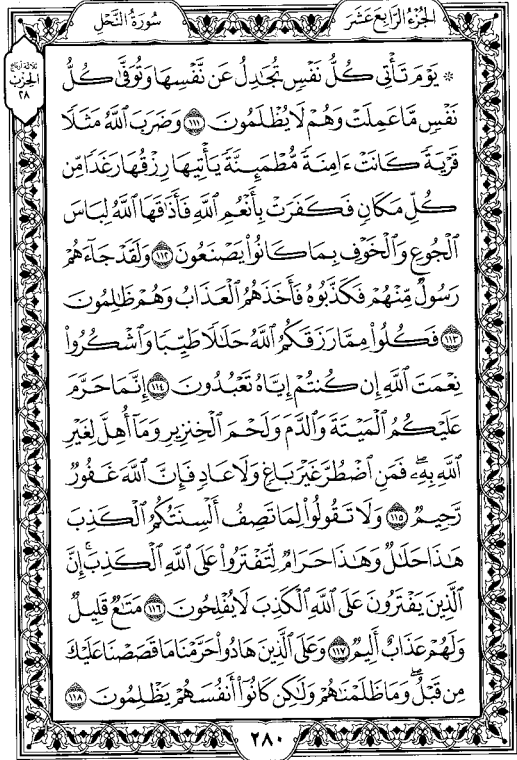 الجُزْءُ الرَّابِعَ عَشَرَ
سُورَةُ النَّحْلِ
ثلاثة أرباع
الحزب
٢٨
۞ يَوْمَ تَأْتِي كُلُّ نَفْسٍ تُجَٰدِلُ عَن نَّفْسِهَا وَتُوَفَّىٰ كُلُّ
نَفْسٍ مَّا عَمِلَتْ وَهُمْ لَا يُظْلَمُونَ ١١١ وَضَرَبَ ٱللَّهُ مَثَلًا
قَرْيَةً كَانَتْ ءَامِنَةً مُّطْمَئِنَّةً يَأْتِيهَا رِزْقُهَا رَغَدًا مِّن
كُلِّ مَكَانٍ فَكَفَرَتْ بِأَنْعُمِ ٱللَّهِ فَأَذَٰقَهَا ٱللَّهُ لِبَاسَ
ٱلْجُوعِ وَٱلْخَوْفِ بِمَا كَانُوا۟ يَصْنَعُونَ ١١٢ وَلَقَدْ جَآءَهُمْ
رَسُولٌ مِّنْهُمْ فَكَذَّبُوهُ فَأَخَذَهُمُ ٱلْعَذَابُ وَهُمْ ظَٰلِمُونَ
١١٣ فَكُلُوا۟ مِمَّا رَزَقَكُمُ ٱللَّهُ حَلَٰلًا طَيِّبًا وَٱشْكُرُوا۟
نِعْمَتَ ٱللَّهِ إِن كُنتُمْ إِيَّاهُ تَعْبُدُونَ ١١٤ إِنَّمَا حَرَّمَ
عَلَيْكُمُ ٱلْمَيْتَةَ وَٱلدَّمَ وَلَحْمَ ٱلْخِنزِيرِ وَمَآ أُهِلَّ لِغَيْرِ
ٱللَّهِ بِهِۦ ۖ فَمَنِ ٱضْطُرَّ غَيْرَ بَاغٍ وَلَا عَادٍ فَإِنَّ ٱللَّهَ غَفُورٌ
رَّحِيمٌ ١١٥ وَلَا تَقُولُوا۟ لِمَا تَصِفُ أَلْسِنَتُكُمُ ٱلْكَذِبَ
هَٰذَا حَلَٰلٌ وَهَٰذَا حَرَامٌ لِّتَفْتَرُوا۟ عَلَى ٱللَّهِ ٱلْكَذِبَ ۚ إِنَّ
ٱلَّذِينَ يَفْتَرُونَ عَلَى ٱللَّهِ ٱلْكَذِبَ لَا يُفْلِحُونَ ١١٦ مَتَٰعٌ قَلِيلٌ
وَلَهُمْ عَذَابٌ أَلِيمٌ ١١٧ وَعَلَى ٱلَّذِينَ هَادُوا۟ حَرَّمْنَا مَا قَصَصْنَا عَلَيْكَ
مِن قَبْلُ ۖ وَمَا ظَلَمْنَٰهُمْ وَلَٰكِن كَانُوٓا۟ أَنفُسَهُمْ يَظْلِمُونَ ١١٨
٢٨٠